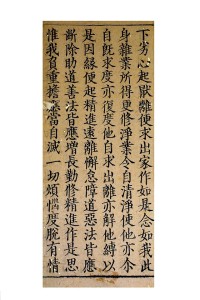 下劣心起猒離便求出家作如是念如我此
身雜業所得更修淨業令自清淨使他亦令
自既求度亦復度他自求出離亦解他縛以
是因緣便起精進遠離懈怠障道惡法皆應
斷除助道善法皆應增長勤修精進作是思
惟我負重擔應當自滅一切煩惱度脫有情